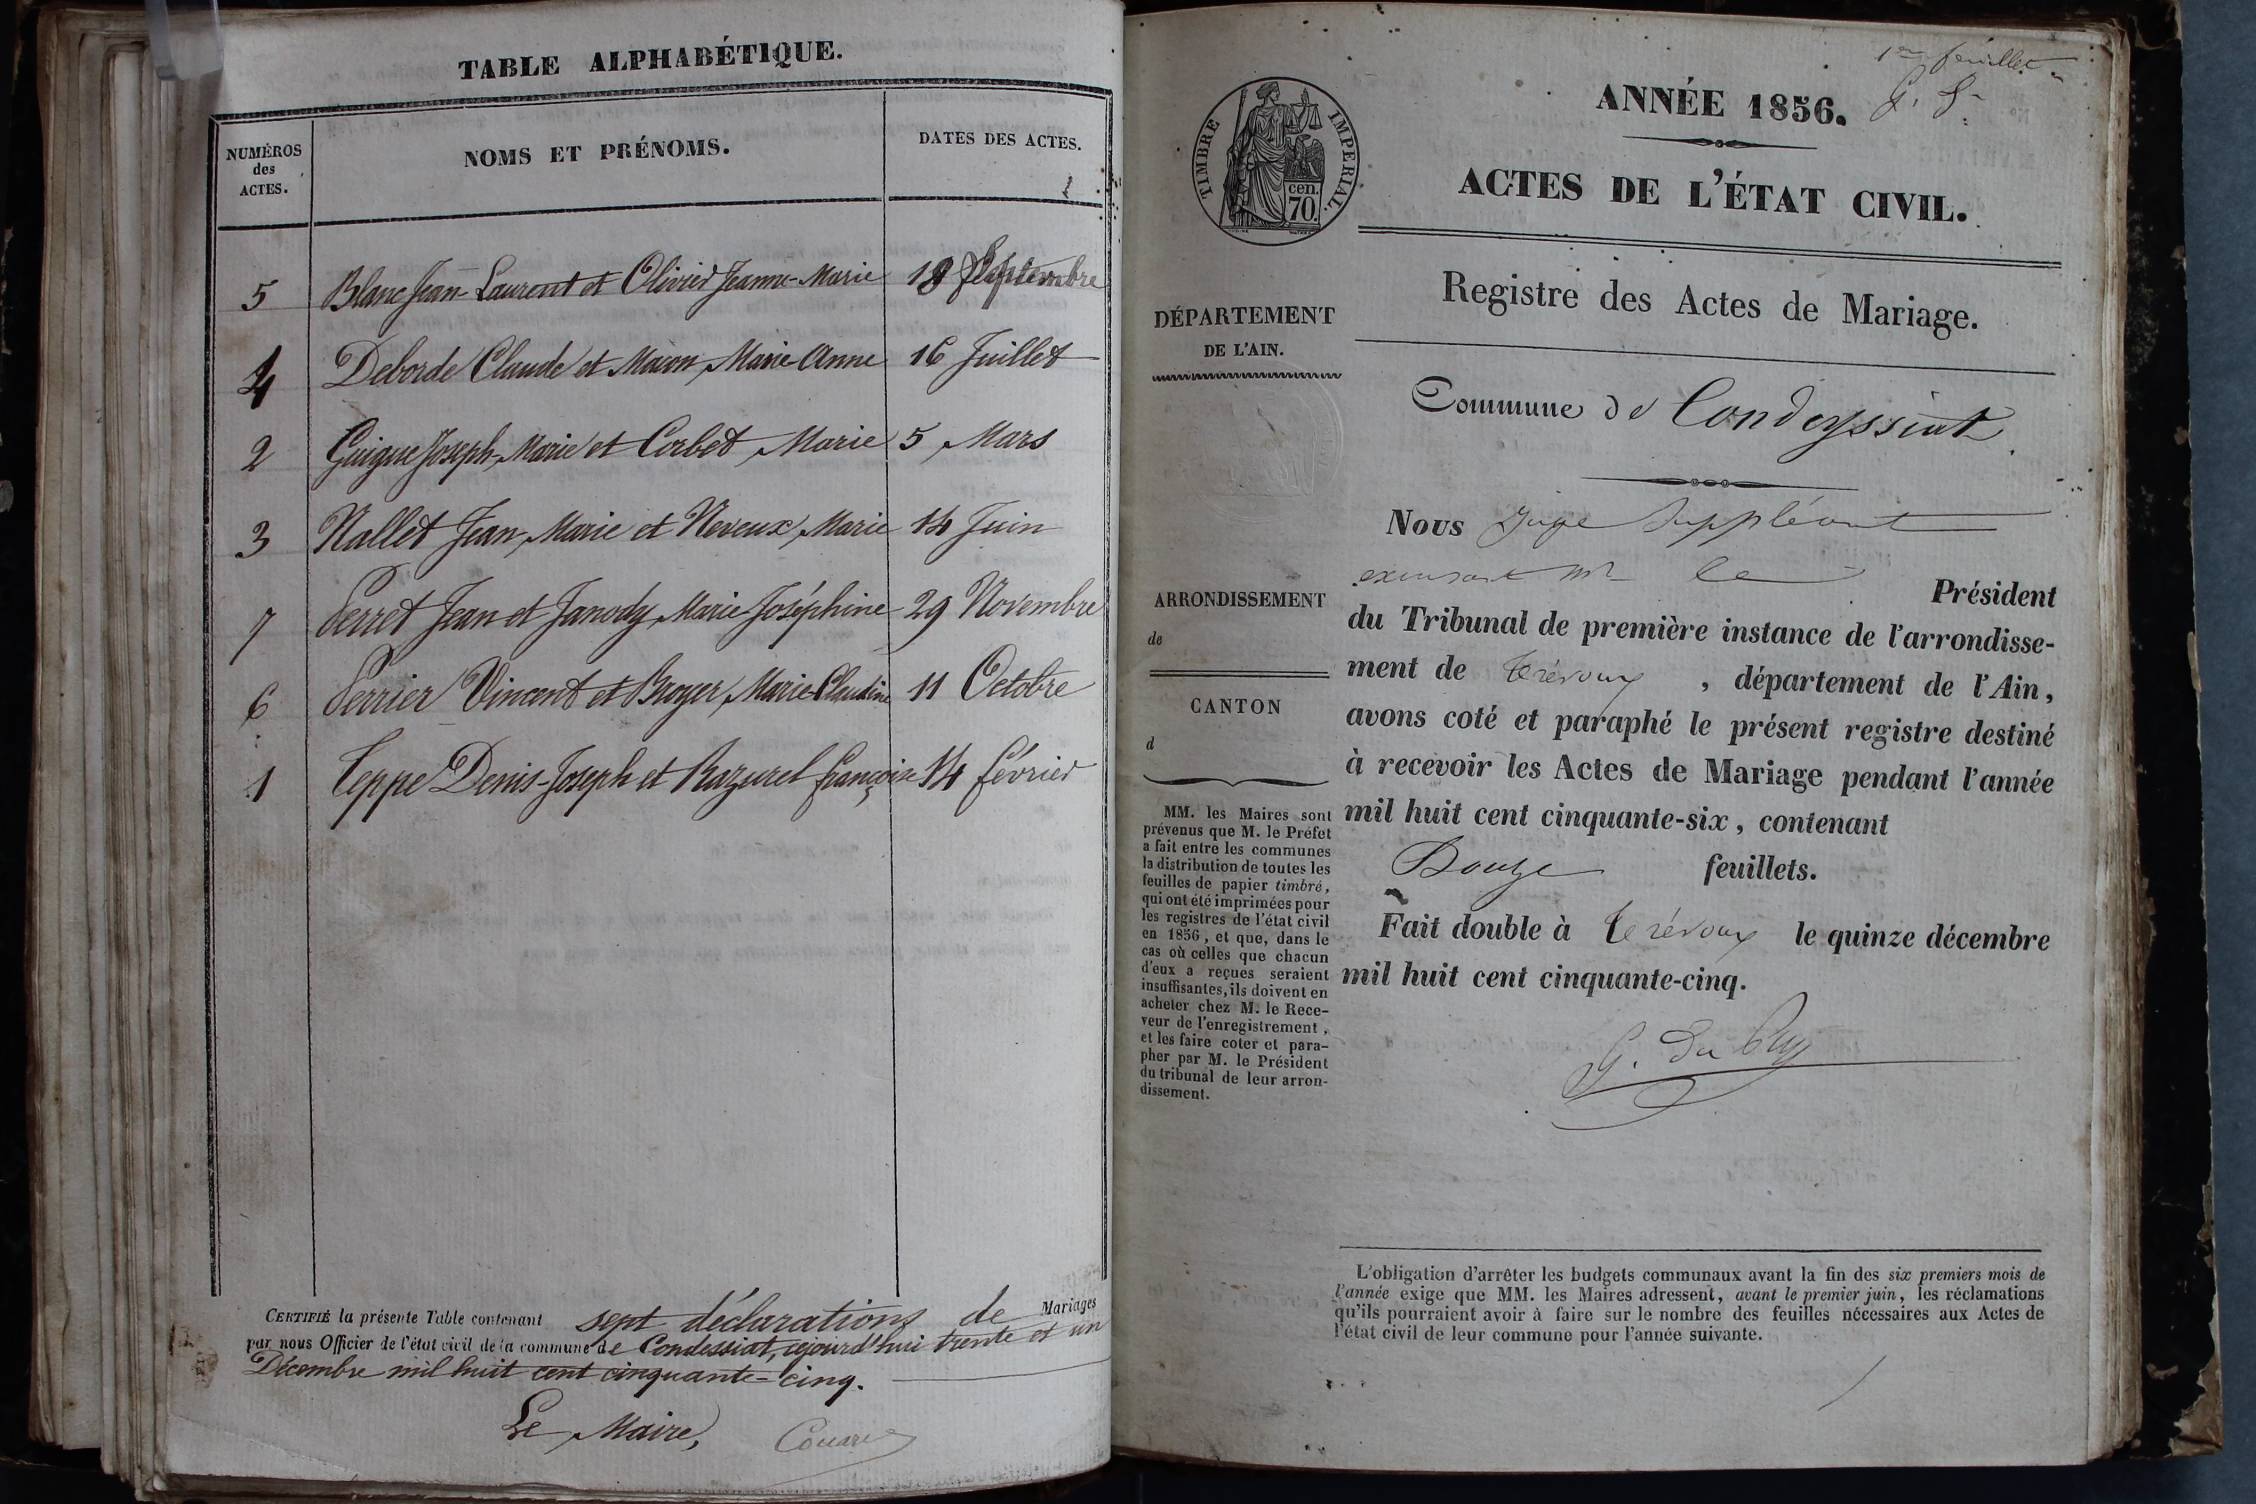 TABLE ALPHABÉTIQUE.
NUMÉROS des ACTES.
NOMS ET PRÉNOMS.
DATES DES ACTES.
5 Blanc Jean-Laurent et Olivier Jeanne-Marie 18 Septembre
4 Deborde Claude et Maron Marie-Anne 16 Juillet
2 Guigue Joseph-Marie et Corbet Marie 5 Mars
3 Nallet Jean Marie et Neveux Marie 14 Juin
7 Perret Jean et Janody Marie Joséphine 29 Novembre
6 Perrier Vincent et Broyer Marie-Claudine 11 Octobre
1 Teppe Denis-Joseph et Razurel françoise 14 février
CERTIFIÉ la présente Table contenant sept déclarations de Mariages
par nous Officier de l'état civil de la commune de Condessiat, aujourd'hui trente et un
Décembre mil huit cent cinquante-cinq.
Le Maire,
1er feuillet
ANNÉE 1856.
ACTES DE L'ÉTAT CIVIL.
TIMBRE IMPERIAL.
cen.
70.
Registre des Actes de Mariage.
DÉPARTEMENT
DE L'AIN.
Commune de Condeyssiat
ARRONDISSEMENT
de
CANTON
d
MM. les Maires sont
prévenus que M. le Préfet
a fait entre les communes
la distribution de toutes les
feuilles de papier timbré,
qui ont été imprimées pour
les registres de l'état civil
en 1856, et que, dans le
cas où celles que chacun
d'eux a reçues seraient
insuffisantes, ils doivent en
acheter chez M. le Rece-
veur de l'enregistrement,
et les faire coter et para-
pher par M. le Président
du tribunal de leur arron-
dissement.
Nous Juge Suppléant
Mr le Président
du Tribunal de première instance de l'arrondisse-
ment de trévoux, département de l'Ain,
avons coté et paraphé le présent registre destiné
à recevoir les Actes de Mariage pendant l'année
mil huit cent cinquante-six, contenant
Douze feuillets.
Fait double à trévoux le quinze décembre
mil huit cent cinquante-cinq.
L'obligation d'arrêter les budgets communaux avant la fin des six premiers mois de
l'année exige que MM. les Maires adressent, avant le premier juin, les réclamations
qu'ils pourraient avoir à faire sur le nombre des feuilles nécessaires aux Actes de
l'état civil de leur commune pour l'année suivante.